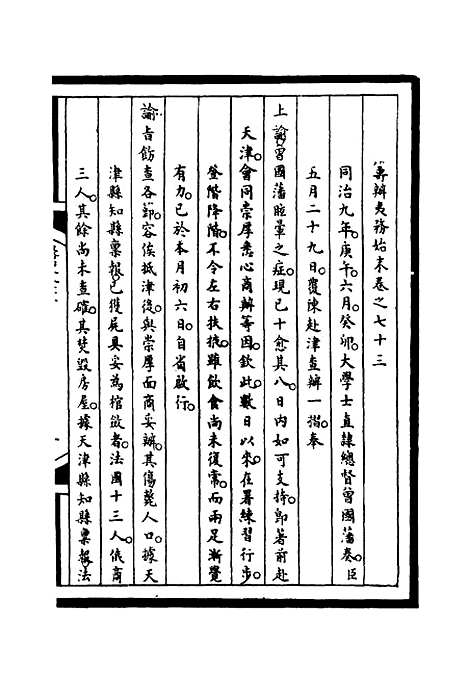 籌辦夷務始末卷之七十三
同治九年。庚午。六月。癸卯。大學士直隸總督曾國藩奏。臣
五月二十九日。覆陳赴津查辦一摺。奉
上諭。曾國藩眩暈之症。現已十愈其八。日內如可支持。卽著前赴
天津。會同崇厚悉心商辦等因。欽此。數日以來。在署練習行步。
登階降階。不令左右扶掖。雖飲食尚未復常。而兩足漸覺
有力。已於本月初六日。自省啟行。
諭旨飭查各節。容俟抵津後。與崇厚面商妥辦。其傷斃人口。據天
津縣知縣稟報。已獲屍具妥為棺斂者。法國十三人。俄商
三人。其餘尚未查確。其焚毀房屋。據天津縣知縣稟報。法